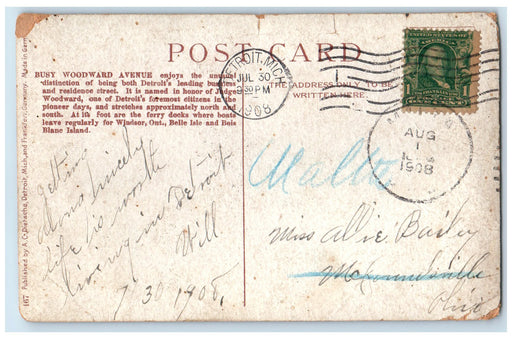 POST CARD
BUSY WOODWARD AVENUE enjoys the unusual
distinction of being both Detroit's leading business
and residence street. It is named in honor of Judge
Woodward, one of Detroit's foremost citizens in the
pioneer days, and stretches approximately north and
south. At its foot are the ferry docks where boats
leave regularly for Windsor, Ont., Belle Isle and Bois
Blanc Island.
DETROIT, MICH.
JUL 30
9 30 PM
1908
THE ADDRESS ONLY TO BE
WRITTEN HERE
AUG
1
1908
Getting
along nicely
life is worth
living in Detroit
Will
7/30 1908.
Malta
Miss Allie Bailey
McConnelsville
Ohio
1617 Published by A. C. Dietsche, Detroit, Mich. and Frankfort, Germany. Made in Germ